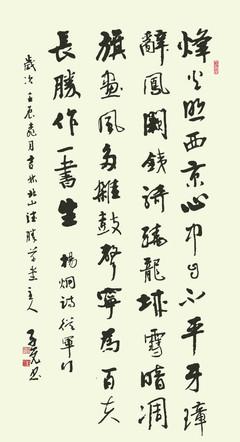 烽火照西京心中自不平牙璋
辭鳳闕鐵騎繞龍城雪暗凋
旗畫風多雜鼓聲寧為百夫
長勝作一書生 楊炯詩從軍行
歲次壬辰月書於北山勝堂主人